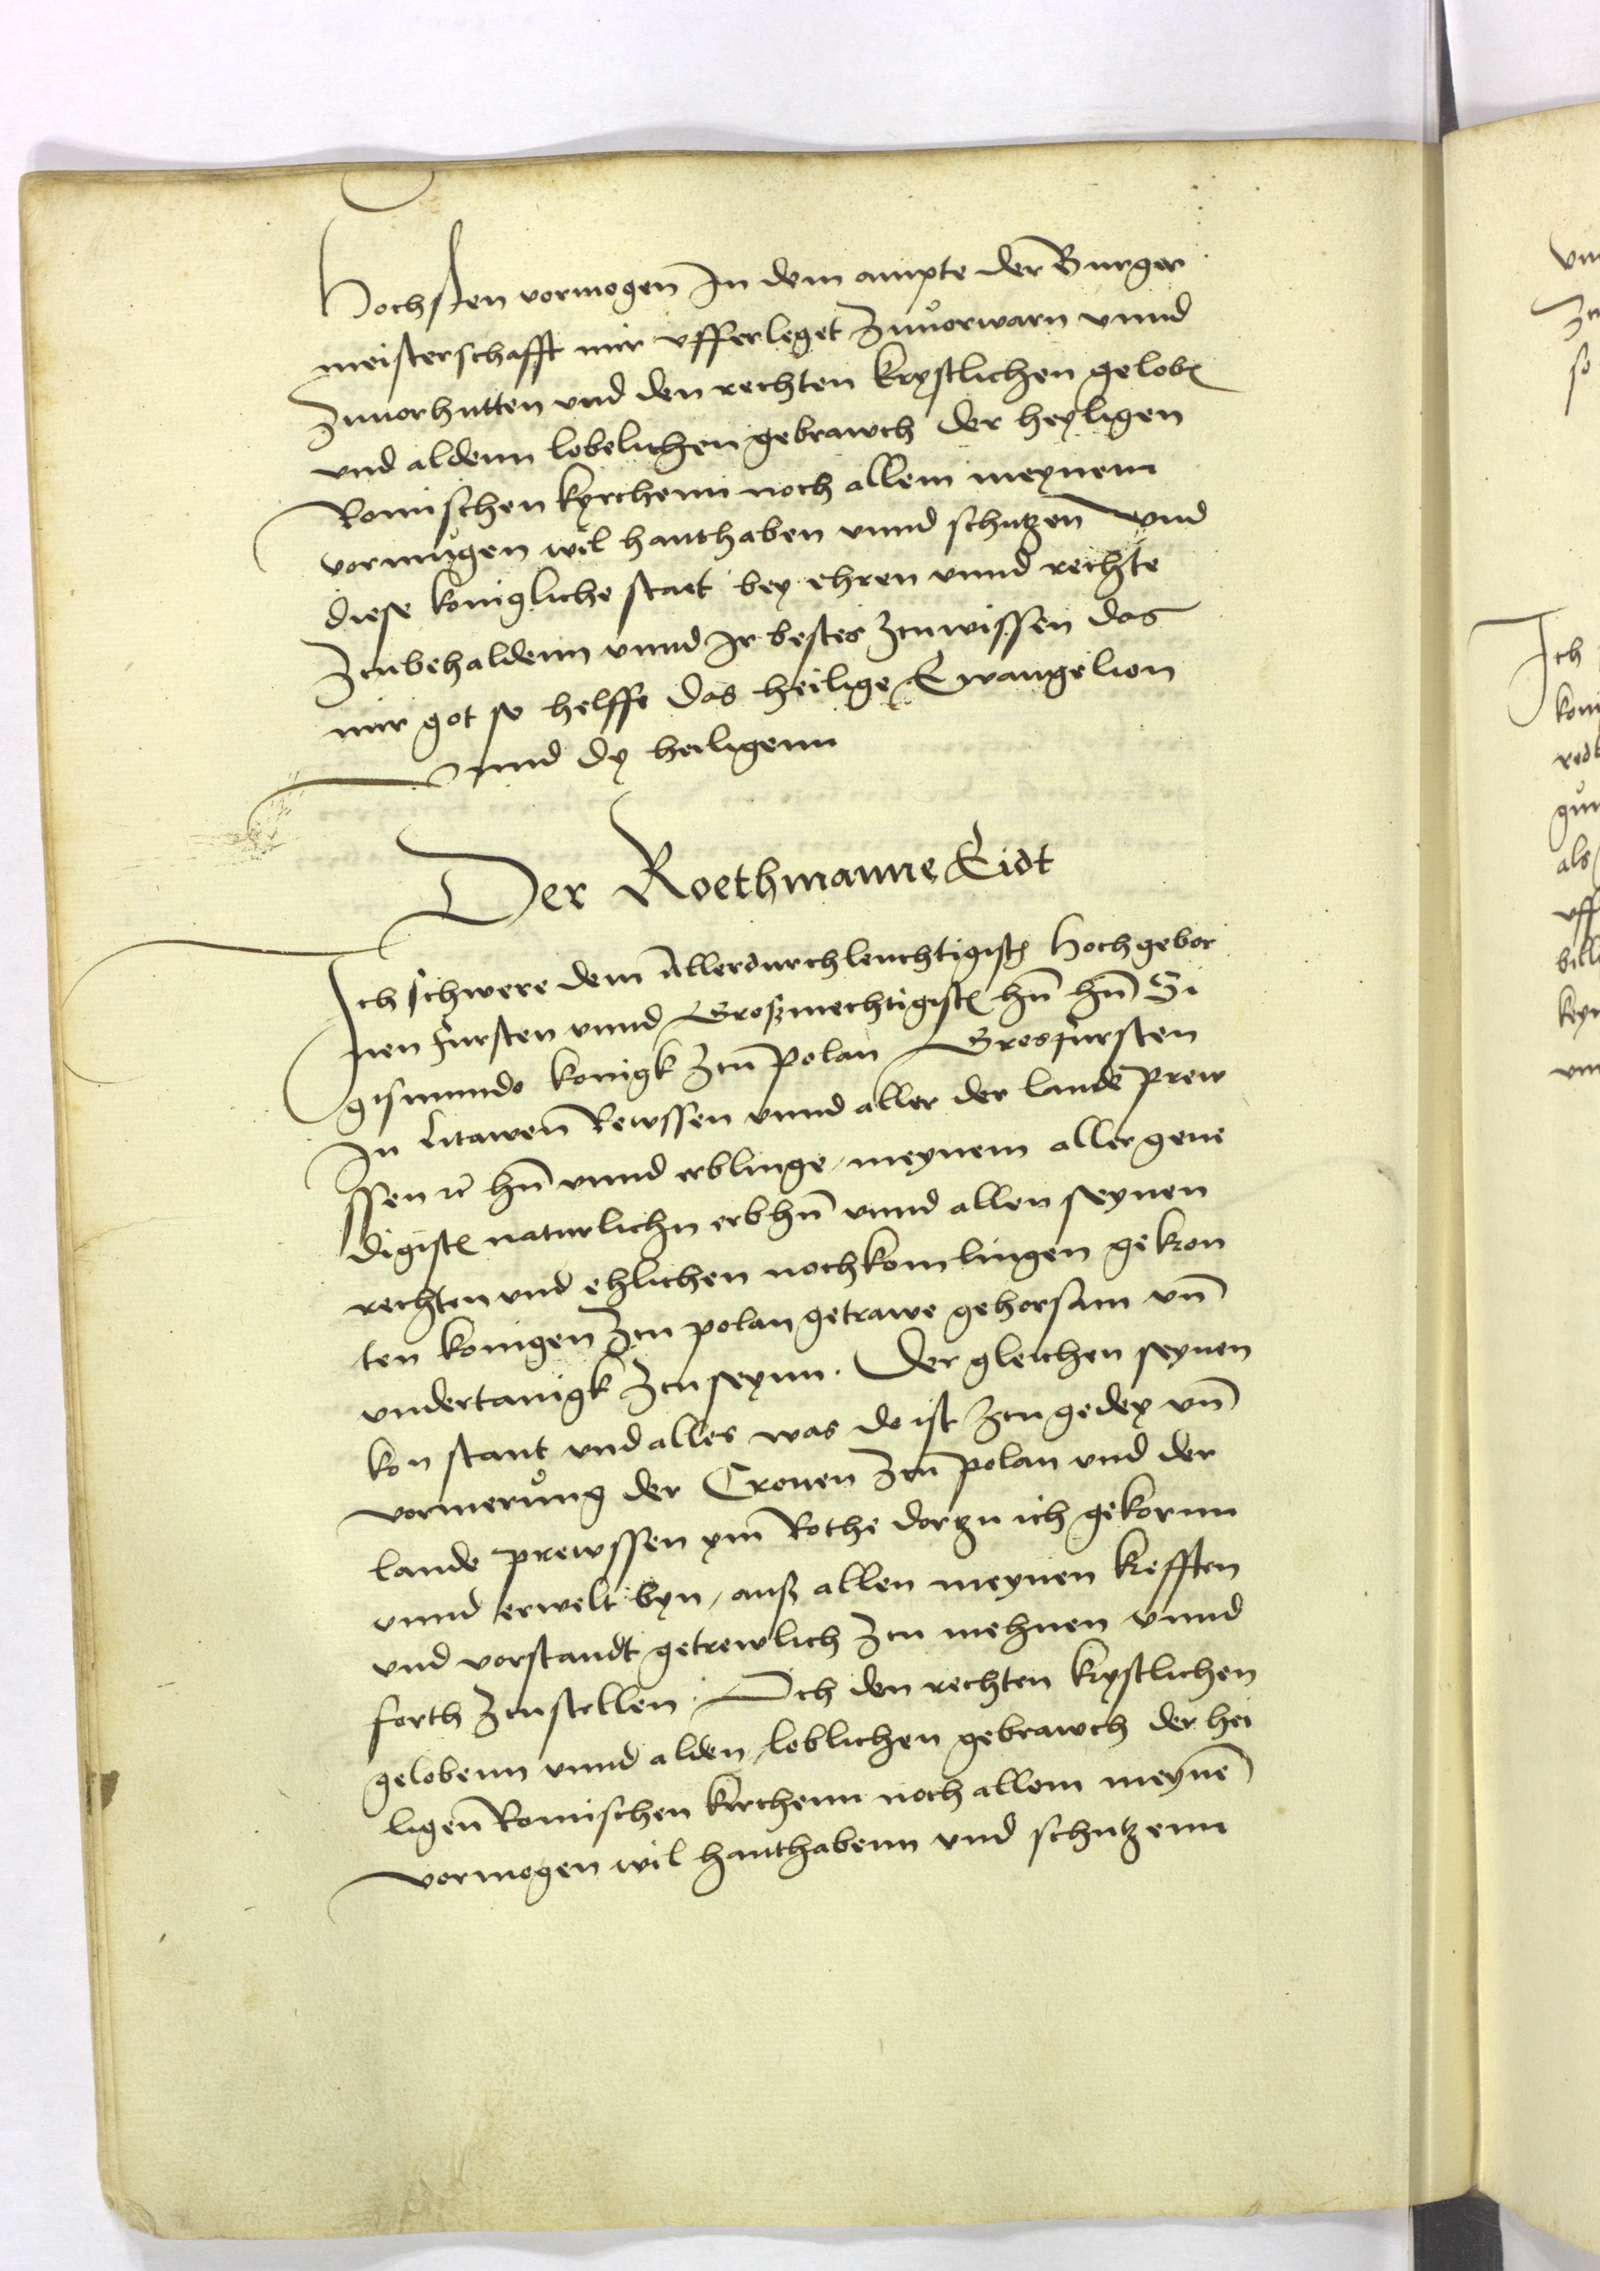 Hochsten vormogen In dem ampte der Burger
meisterschafft mir ufferleget Zuuorwarn unnd
Zuuorhutten und den rechten krystlichen gelobn
und aldenn lobelichen gebrawch der heyligen
Romischen kyrchenn noch allem meynem
vormugen wil hanthaben unnd schutzen und
diese konigliche stat bey ehren unnd rechte
Zcubehaldenn unnd Ir bestes zcuwissen das
mir got so helffe das heilige Ewangelion
unnd dy heiligenn
Der Roethmanne Eidt
Ich schwere dem Allerdurchleuchtigistn Hochgebor
nen fursten unnd Großmechtigistn hn̄ hn̄ Si
gismundo konigk Zcu polan Grosfursten
In Litawen Rewssen unnd aller der lande prew
ssen ꝛc hn̄ unnd erblinge meynem allergene
digistn naturlichn erbhn̄ unnd allen seynen
rechten und ehlichen nochkomlingen gekron
ten konigen Zcu polan getrawe gehorsam un̄
undertanigk Zcu seynn. Der gleichen seynen
kon stant und alles was do ist Zcu gedey un̄
vormerung der Cronen Zcu polan und der
lande prewssen ym Rothe dorzu ich gekornn
unnd erwelt byn, auß allen meynen krefften
und vorstandt getrewlich Zcu mehnen unnd
forth Zcu stellen. Och den rechten krystlichen
gelobenn unnd alden loblichen gebrawch der hei
ligen Romischen kirchenn noch allem meynē
vormogen wil hanthabenn und schutzenn
Ich